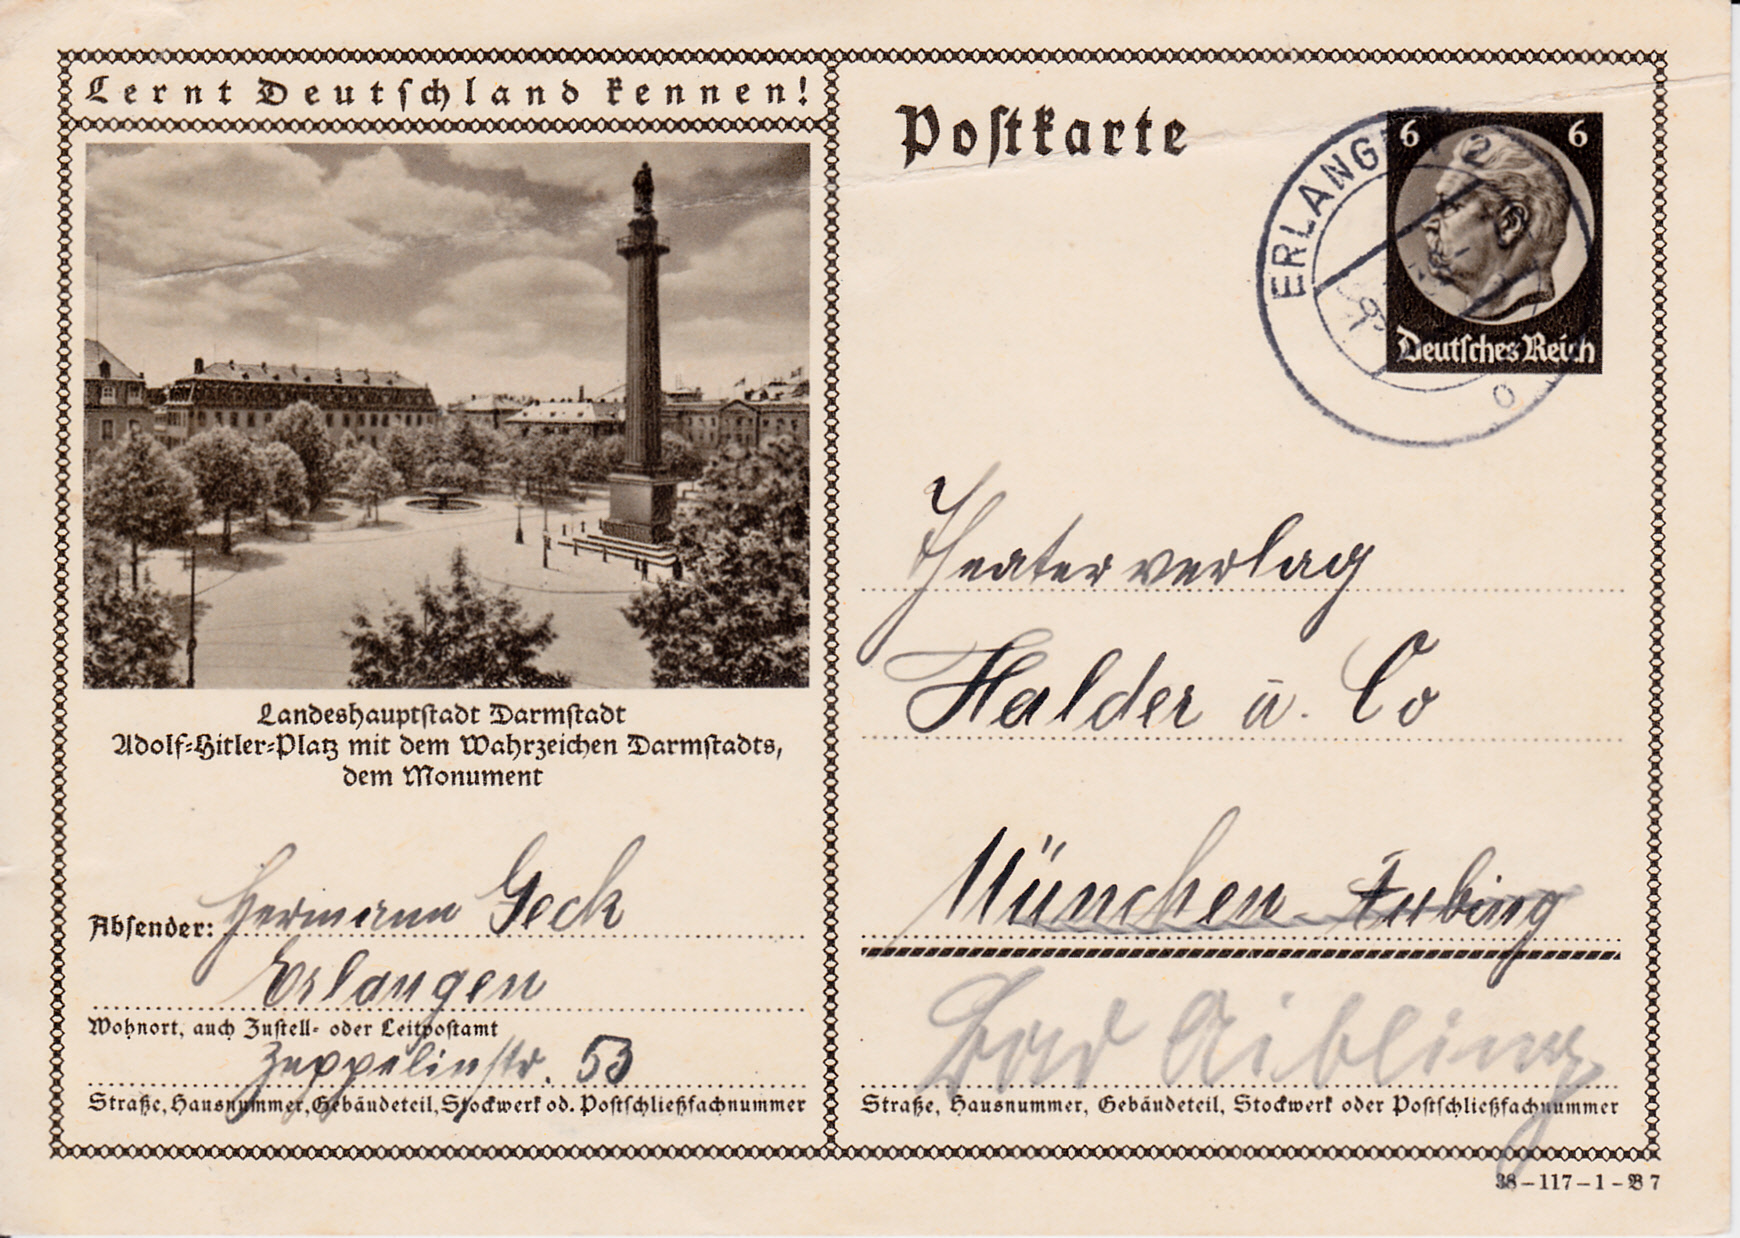 Lernt Deutschland kennen!
Landeshauptstadt Darmstadt
Adolf-Hitler-Platz mit dem Wahrzeichen Darmstadts,
dem Monument
Absender: Hermann Geck
Erlangen
Wohnort, auch Zustell- oder Leitpostamt
Zeppelinstr. 53
Straße, Hausnummer, Gebäudeteil, Stockwerk od. Postschließfachnummer
Postkarte
ERLANGEN 2
6 6
Deutsches Reich
Theaterverlag
Halder u. Co
München-Aubing
Bad Aibling
Straße, Hausnummer, Gebäudeteil, Stockwerk oder Postschließfachnummer
38-117-1-B7